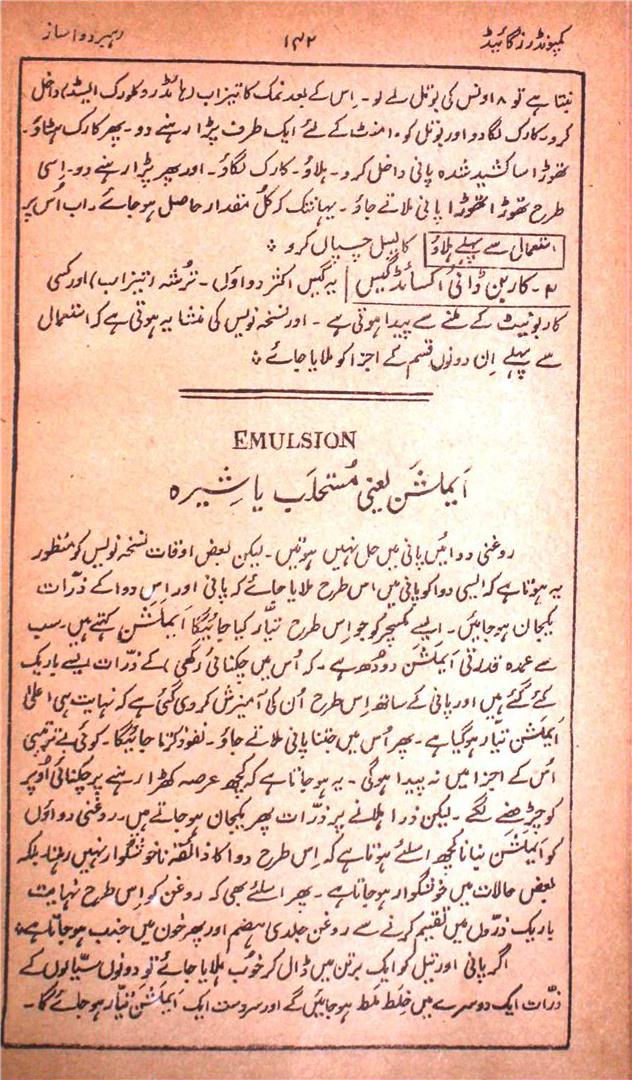 کمپونڈرز گائیڈ ۱۴۲ رہبر دواساز
بنتا ہے تو ۸ اونس کی بوتل لے لو۔ اِس کے بعد نمک کا تیزاب (ہائڈروکلورک ایسڈ) داخل
کرو۔ کارک لگا دو اور بوتل کو ۱۰ منٹ کے لئے ایک طرف پڑا رہنے دو۔ پھر کارک ہٹاؤ۔
تھوڑا سا کشید شدہ پانی داخل کرو۔ ہلاؤ۔ کارک لگاؤ۔ اور پھر پڑا رہنے دو۔ اِسی
طرح تھوڑا تھوڑا پانی ملاتے جاؤ۔ یہانتک کہ کُل مقدار حاصل ہو جائے۔ اب اُس پر
استعمال سے پہلے ہلاؤ کا لیبل چسپاں کرو ؞
۲۔ کاربن ڈائی اکسائڈ گیس یہ گیس اکثر دواؤں۔ تُرشہ (تیزاب) اور کسی
کاربونیٹ کے ملنے سے پیدا ہوتی ہے۔ اور نسخہ نویس کی منشا یہ ہوتی ہے کہ استعمال
سے پہلے اِن دونوں قسم کے اجزا کو ملایا جائے ؞
EMULSION
اَیملشَن یعنی مُستحلَب یا شِیرہ
روغنی دوائیں پانی میں حل نہیں ہوتیں۔ لیکن بعض اوقات نسخہ نویس کو منظور
یہ ہوتا ہے کہ ایسی دوا کو پانی میں اس طرح ملایا جائے کہ پانی اور اِس دوا کے ذرّات
یکجان ہو جائیں۔ ایسے مکسچر کو جو اِس طرح تیّار کیا جائیگا اَیملشَن کہتے ہیں۔ سب
سے عمدہ قدرتی اَیملشَن دودھ ہے۔ کہ اُس میں چکنائی (گھی) کے ذرّات ایسے باریک
کئے گئے ہیں اور پانی کے ساتھ اِس طرح اُن کی آمیزش کر دی گئی ہے کہ نہایت ہی اعلیٰ
اَیملشَن تیّار ہو گیا ہے۔ پھر اُس میں جتنا پانی ملاتے جاؤ۔ نفوذ کرتا جائیگا۔ کوئی بے ترتیبی
اُس کے اجزا میں نہ پیدا ہوگی۔ یہ ہو جاتا ہے کہ کچھ عرصہ کھڑا رہنے پر چکنائی اُوپر
کو چڑھنے لگے۔ لیکن ذرا ہلانے پر ذرّات پھر یکجان ہو جاتے ہیں۔ روغنی دواؤں
کو اَیملشَن بنانا کچھ اسلئے ہوتا ہے کہ اِس طرح دوا کا ذائقہ ناخوشگوار نہیں رہتا۔ بلکہ
بعض حالات میں خوشگوار ہو جاتا ہے۔ پھر اسلئے بھی کہ روغن کو اِس طرح نہایت
باریک ذرّوں میں تقسیم کرنے سے روغن جلدی ہضم اور پھر خون میں جذب ہو جاتا ہے ؞
اگر پانی اور تیل کو ایک برتن میں ڈال کر خوب ہلایا جائے تو دونوں سیّالوں کے
ذرّات ایک دوسرے میں خلط ملط ہو جائیں گے اور سردست ایک اَیملشَن تیّار ہو جائے گا۔